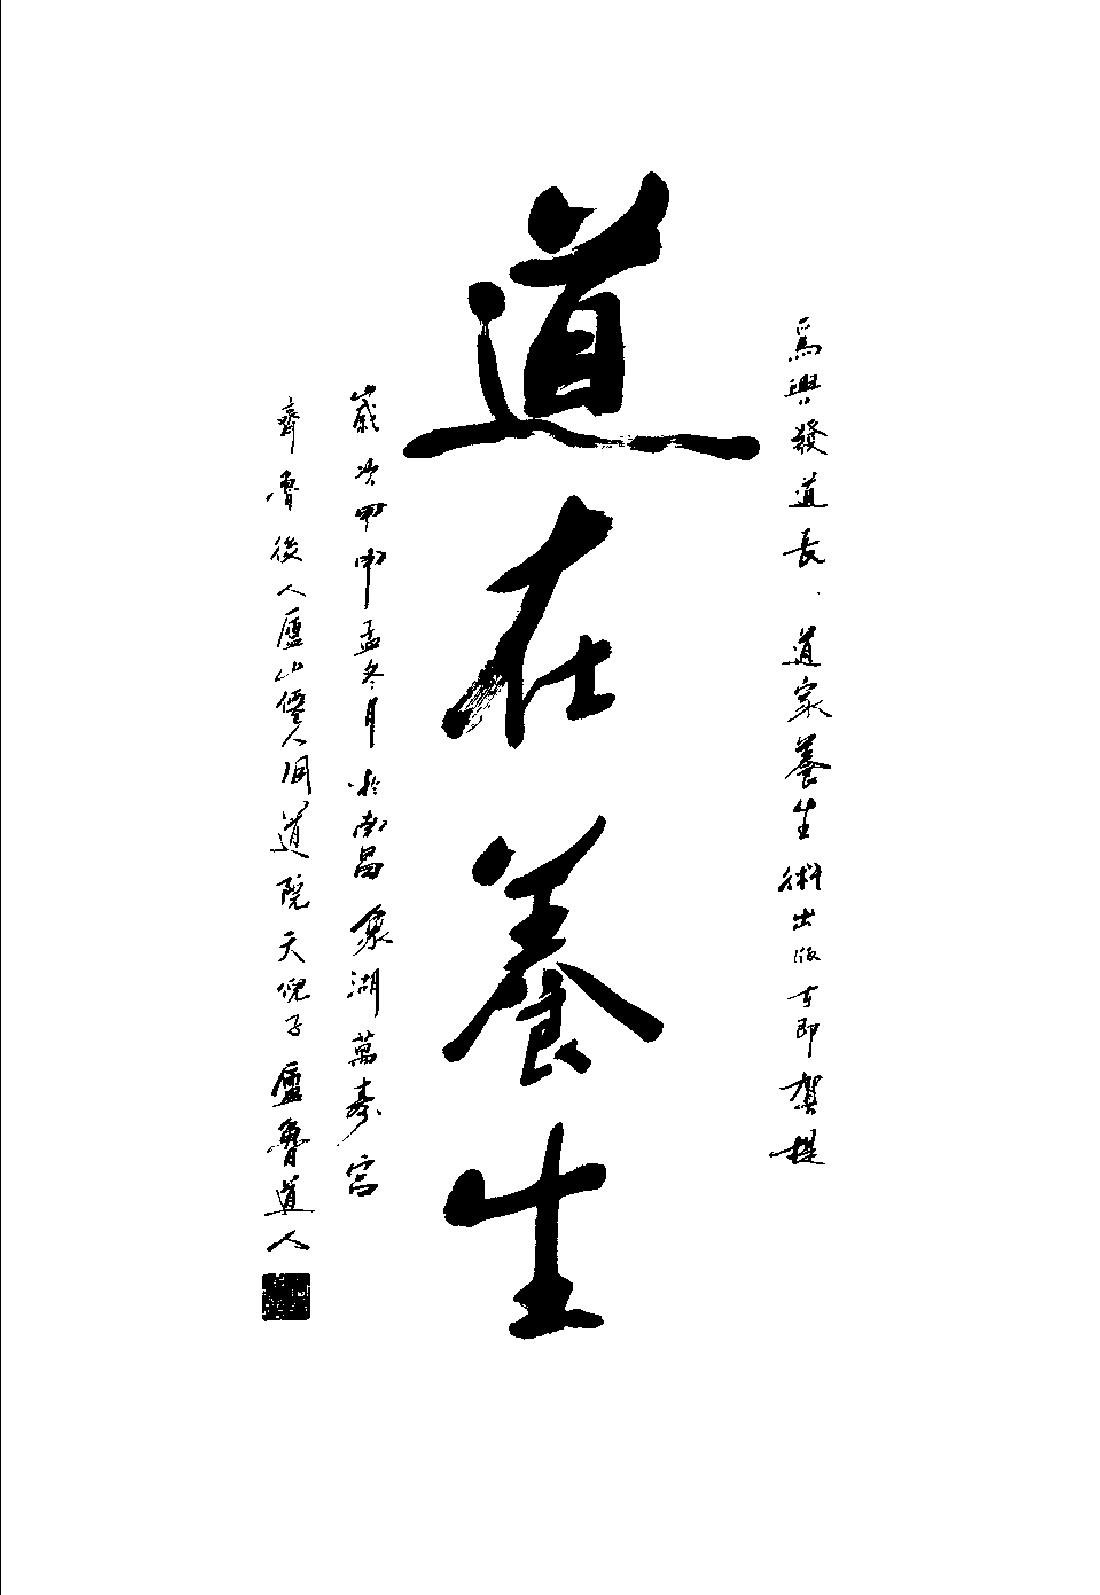 為興發道長、道家養生術出版立即賀提
道在養生
歲次甲申孟冬月於南昌象湖萬壽宮
齊魯後人廬山僊人洞道院天倪子廬魯道人